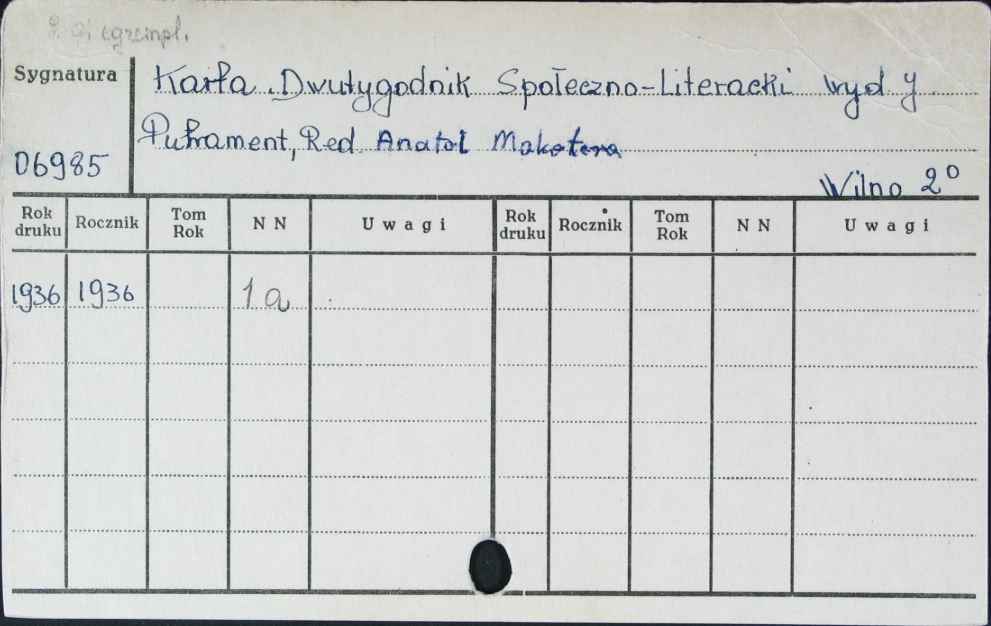 egzempl.
Sygnatura Karta. Dwutygodnik Społeczno-Literacki wyd J
Putrament, Red Anatol Makotera
06985
Wilno 2º
Rok druku Rocznik Tom Rok N N Uwagi Rok druku Rocznik Tom Rok N N Uwagi
1936 1936 1a